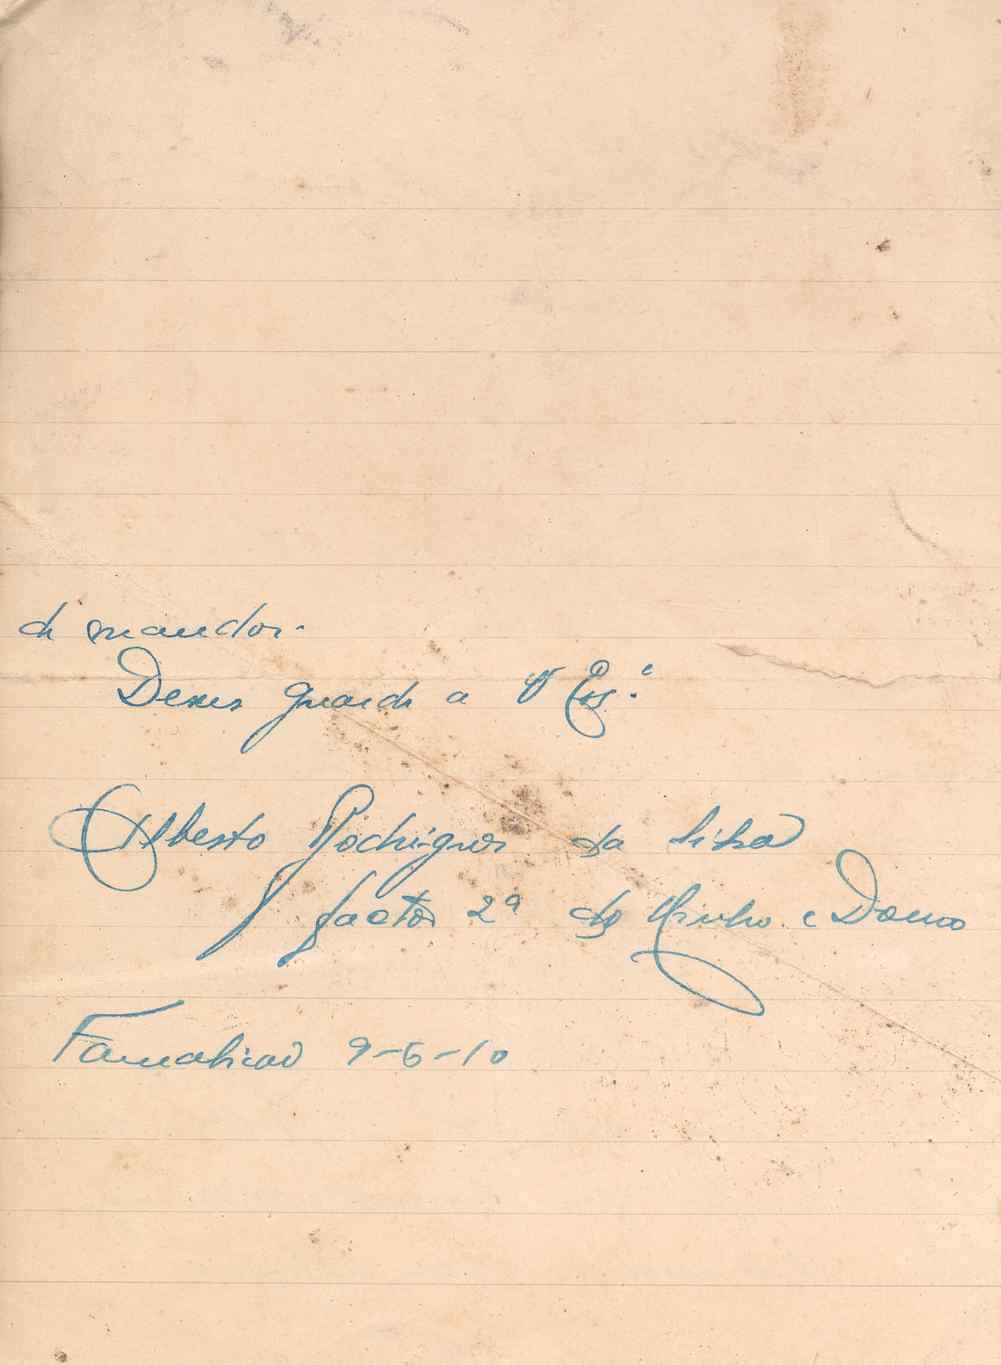 de mandar.
Deus guarde a V Ex.ª
Alberto Rodrigues da Silva
factor 2ª do Minho e Douro
Famalicão 9-6-10